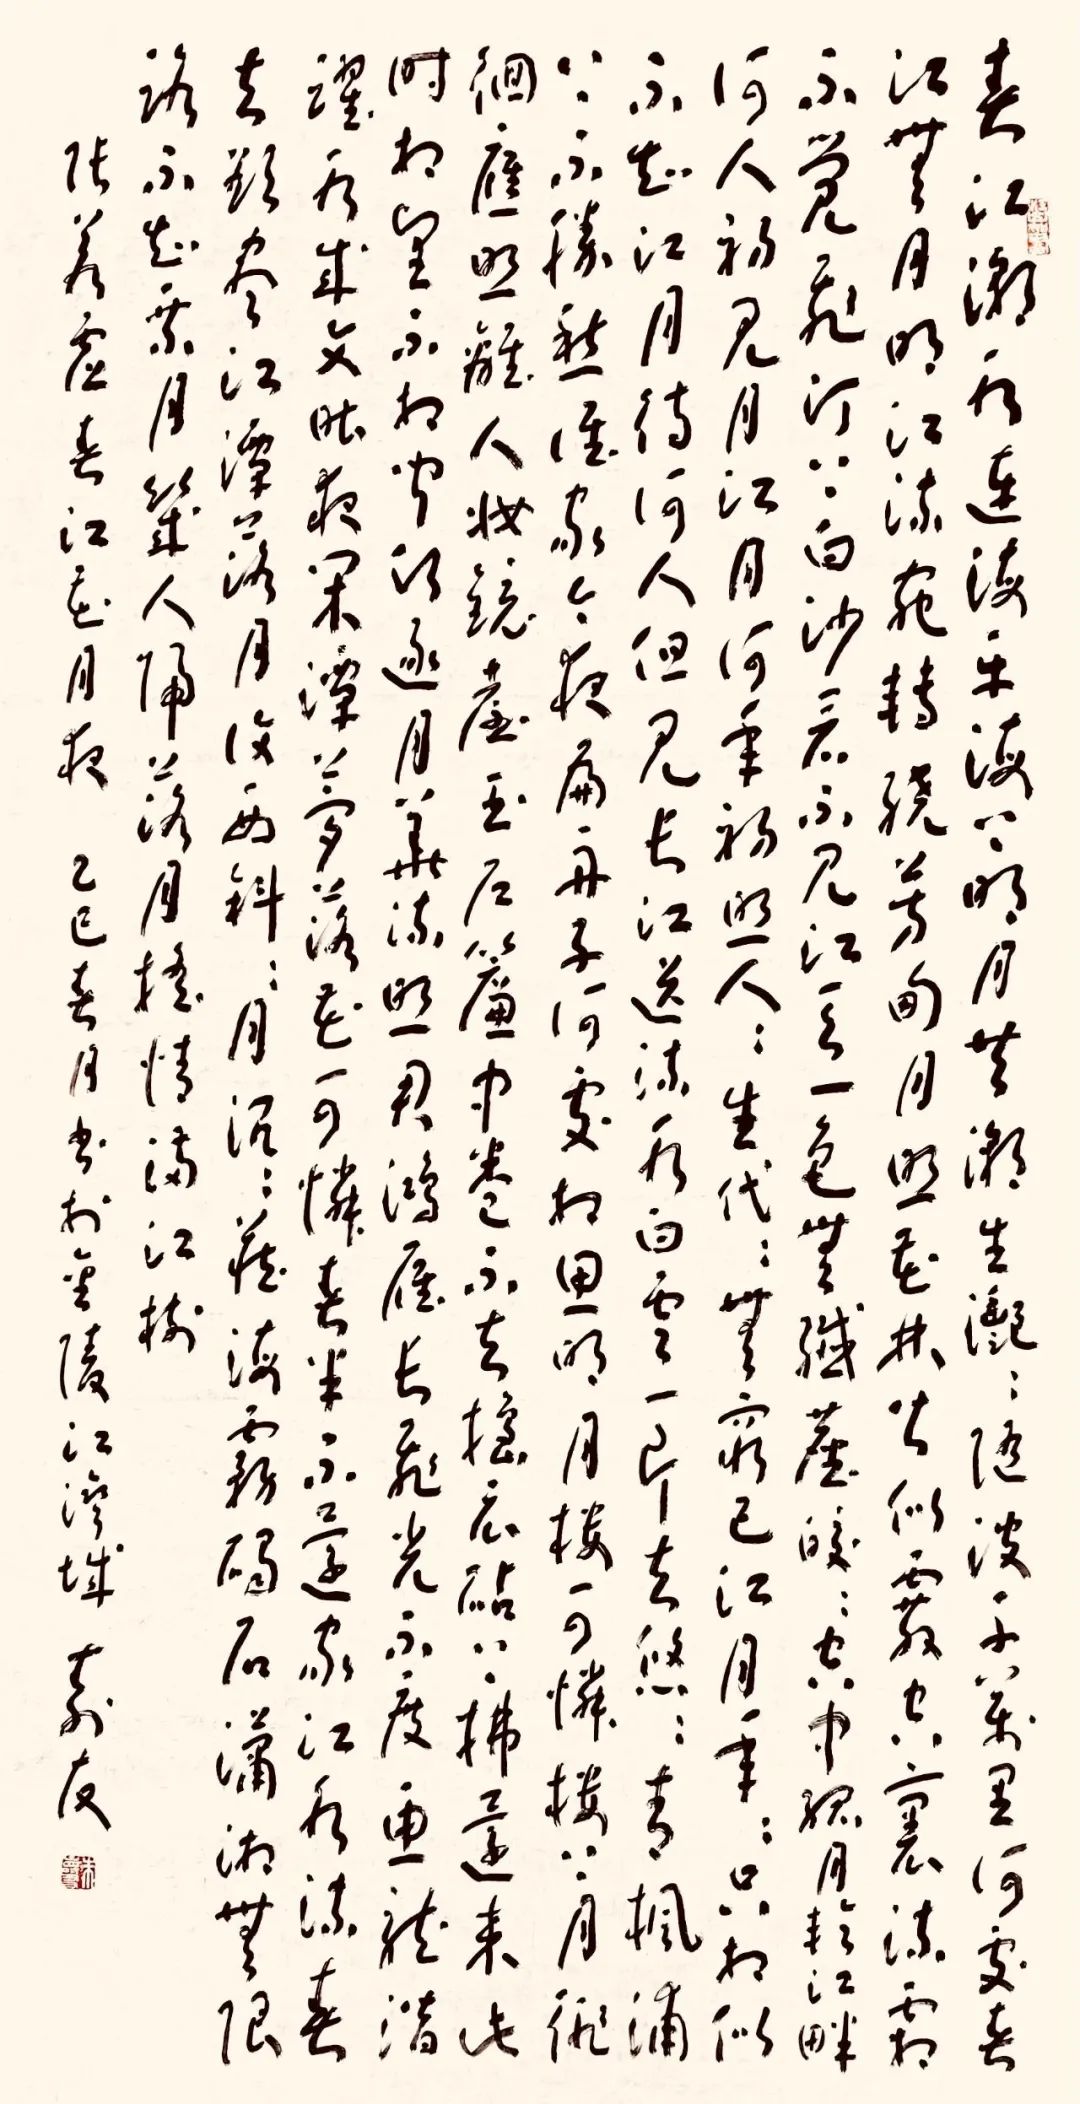 春江潮水連海平海上明月共潮生灩〻隨波千萬里何處春
江無月明江流宛轉繞芳甸月照花林皆似霰空裏流霜
不覺飛汀上白沙看不見江天一色無纖塵皎〻空中孤月輪江畔
何人初見月江月何年初照人〻生代〻無窮已江月年〻只相似
不知江月待何人但見長江送流水白雲一片去悠〻青楓浦
上不勝愁誰家今夜扁舟子何處相思明月樓可憐樓上月徘
徊應照離人妝鏡臺玉戶簾中卷不去搗衣砧上拂還來此
時相望不相聞願逐月華流照君鴻雁長飛光不度魚龍潛
躍水成文昨夜閑潭夢落花可憐春半不還家江水流春
去欲盡江潭落月復西斜〻月沉〻藏海霧碣石瀟湘無限
路不知乘月幾人歸落月搖情滿江樹
張若虛春江花月夜 乙巳春月書於金陵江灣城 壽友